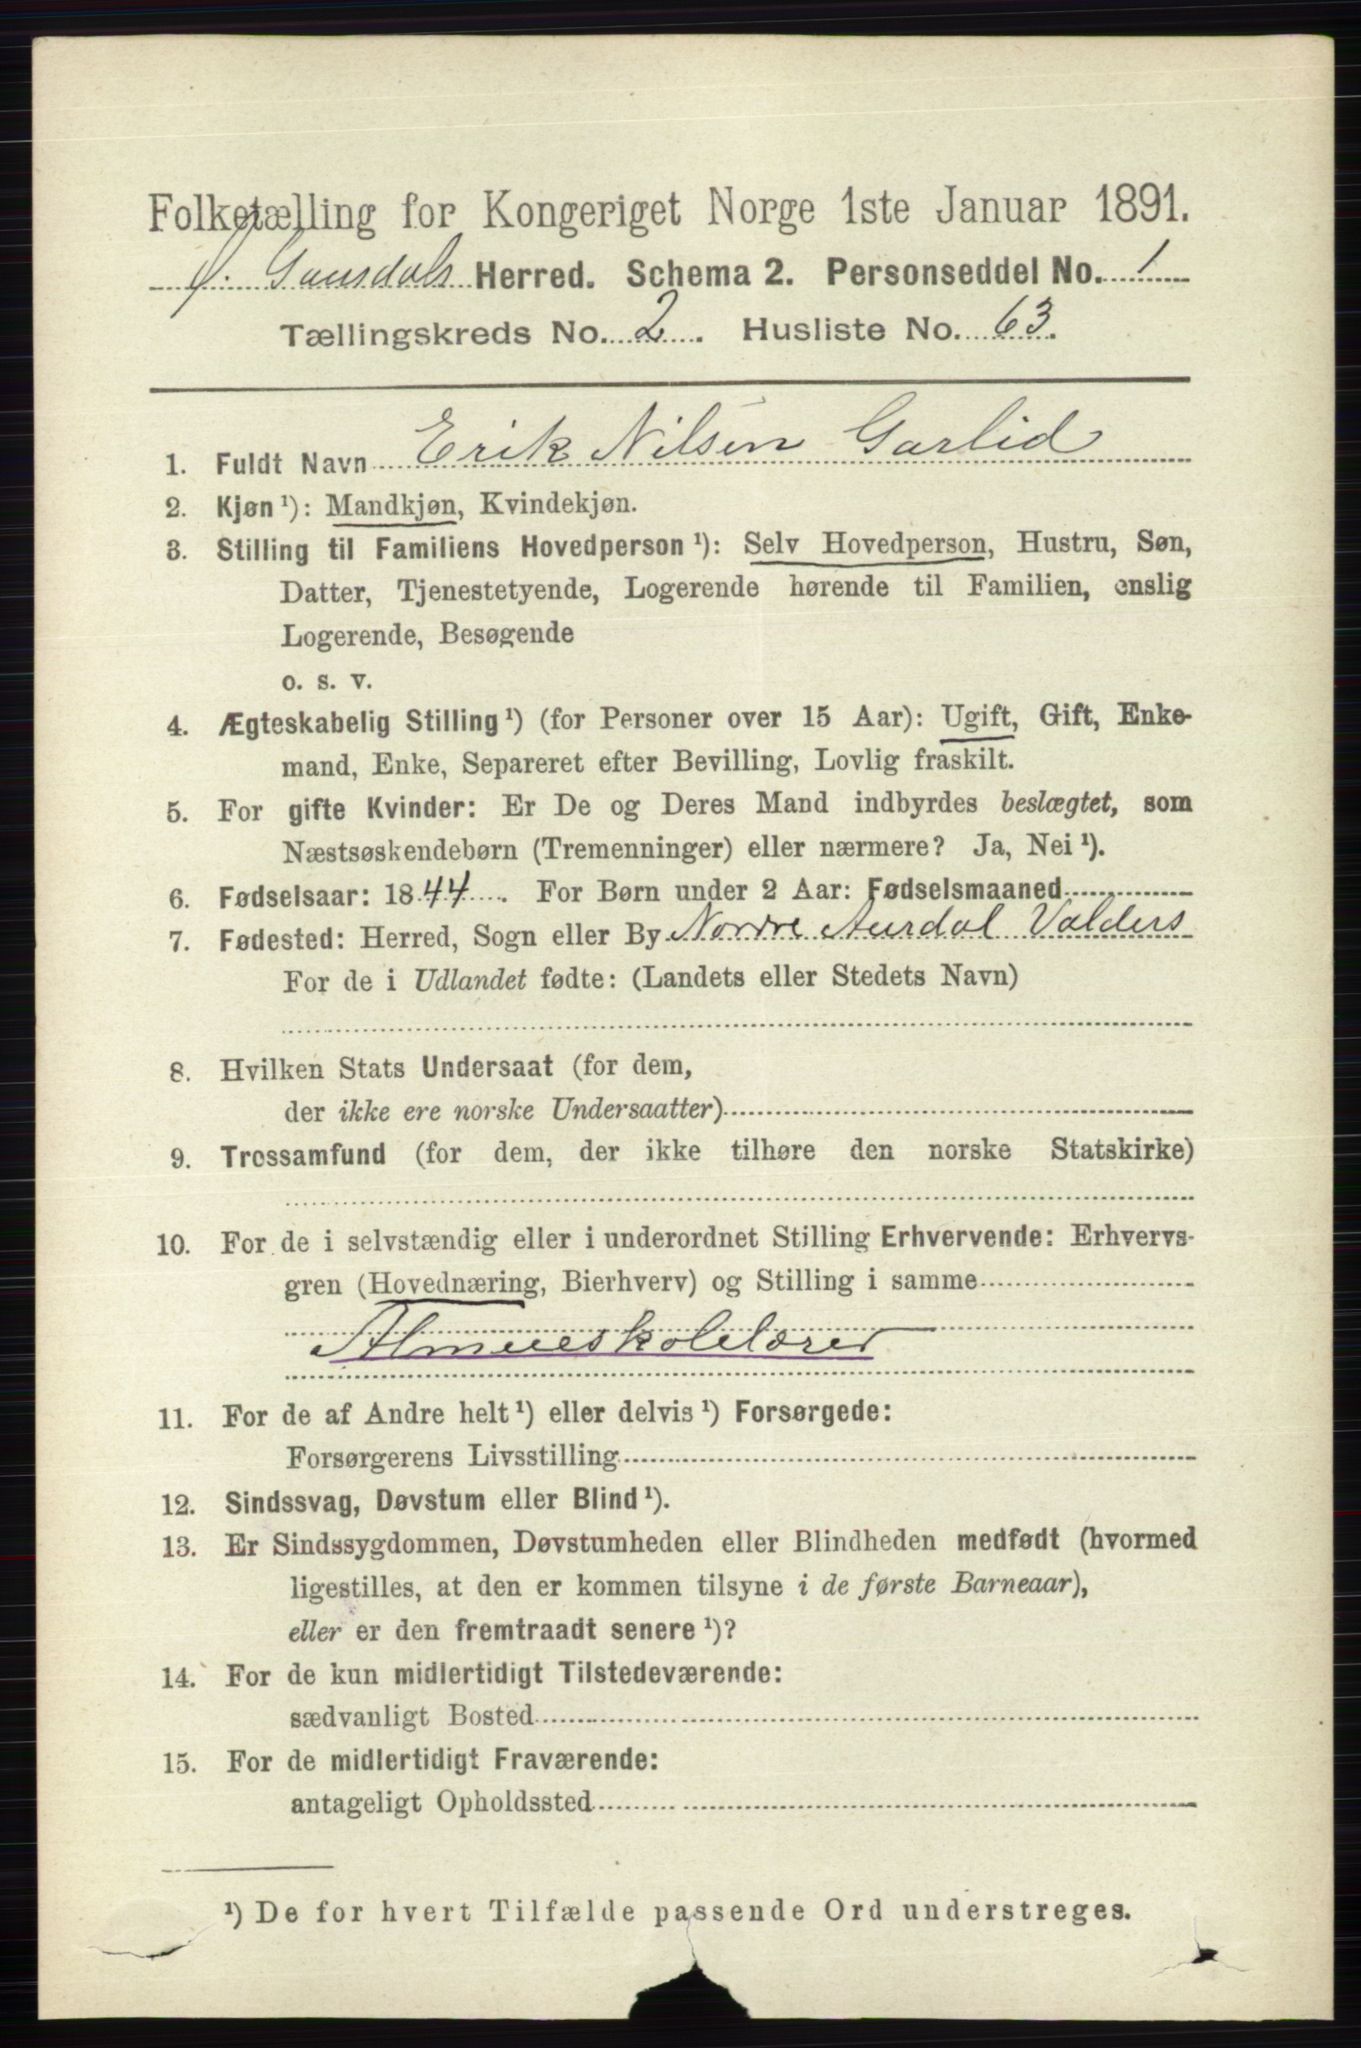 Folketælling for Kongeriget Norge 1ste Januar 1891.
Gausdals Herred. Schema 2. Personseddel No. 1
Tællingskreds No. 2. Husliste No. 63.
1. Fuldt Navn Erik Nilsen Garlid
2. Kjøn¹): Mandkjøn, Kvindekjøn.
3. Stilling til Familiens Hovedperson¹): Selv Hovedperson, Hustru, Søn,
Datter, Tjenestetyende, Logerende hørende til Familien, enslig
Logerende, Besøgende
o. s. v.
4. Ægteskabelig Stilling¹) (for Personer over 15 Aar): Ugift, Gift, Enke-
mand, Enke, Separeret efter Bevilling, Lovlig fraskilt.
5. For gifte Kvinder: Er De og Deres Mand indbyrdes beslægtet, som
Næstsøskendebørn (Tremenninger) eller nærmere? Ja, Nei¹).
6. Fødselsaar: 1844. For Børn under 2 Aar: Fødselsmaaned
7. Fødested: Herred, Sogn eller By Nordre Aurdal Valders
For de i Udlandet fødte: (Landets eller Stedets Navn)
8. Hvilken Stats Undersaat (for dem,
der ikke ere norske Undersaatter)
9. Trossamfund (for dem, der ikke tilhøre den norske Statskirke)
10. For de i selvstændig eller i underordnet Stilling Erhvervende: Erhvervs-
gren (Hovednæring, Bierhverv) og Stilling i samme
Almueskolelærer
11. For de af Andre helt¹) eller delvis¹) Forsørgede:
Forsørgerens Livsstilling
12. Sindssvag, Døvstum eller Blind¹).
13. Er Sindssygdommen, Døvstumheden eller Blindheden medfødt (hvormed
ligestilles, at den er kommen tilsyne i de første Barneaar),
eller er den fremtraadt senere¹)?
14. For de kun midlertidigt Tilstedeværende:
sædvanligt Bosted
15. For de midlertidigt Fraværende:
antageligt Opholdssted
¹) De for hvert Tilfælde passende Ord understreges.